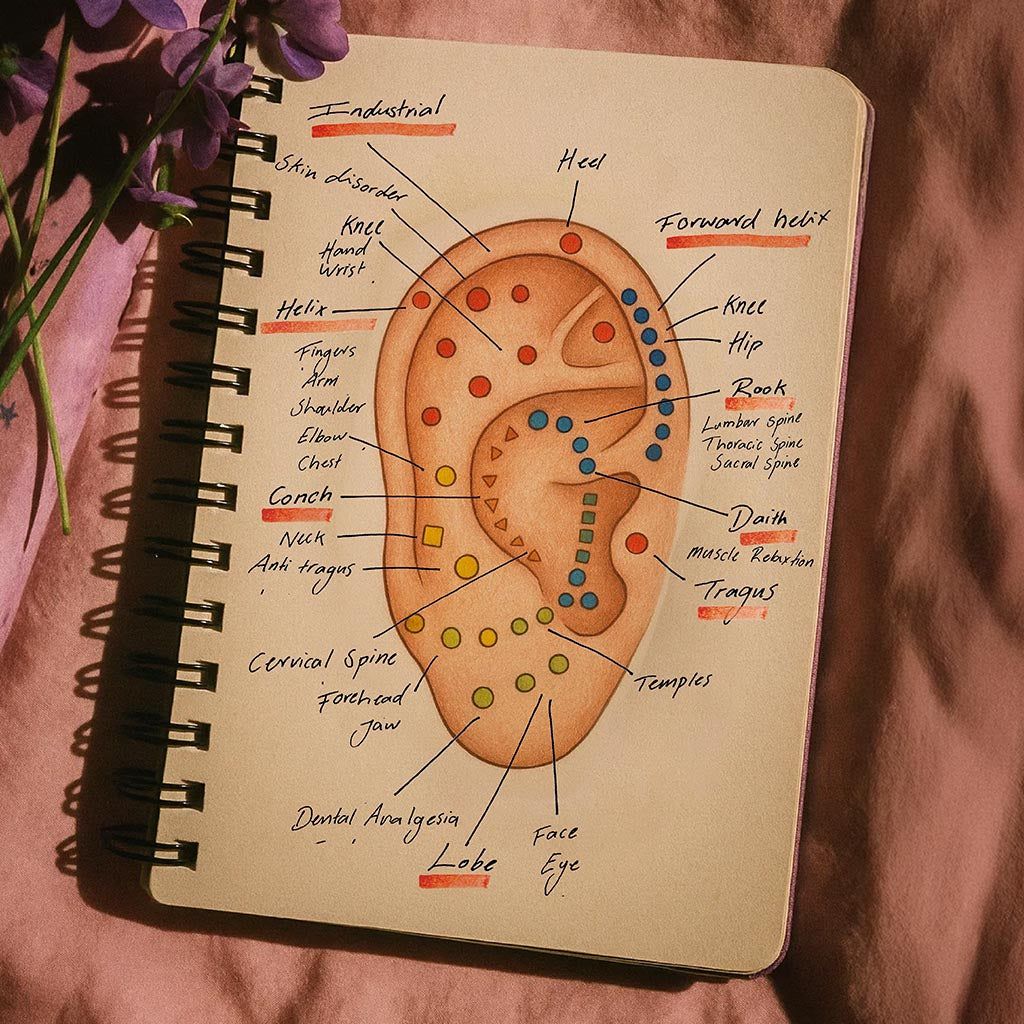 Industrial
Skin disorder
Heel
Knee
Hand
Wrist
Forward helix
Helix
Knee
Hip
Fingers
Arm
Shoulder
Elbow
Chest
Rook
Lumbar Spine
Thoracic Spine
Sacral Spine
Conch
Neck
Anti tragus
Daith
Muscle Relaxtion
Tragus
Cervical Spine
Forehead
Jaw
Temples
Dental Analgesia
Lobe
Face
Eye